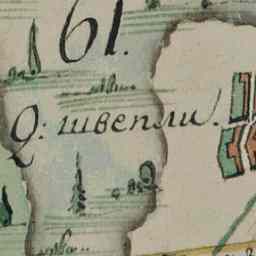 61.
Q: швепли.